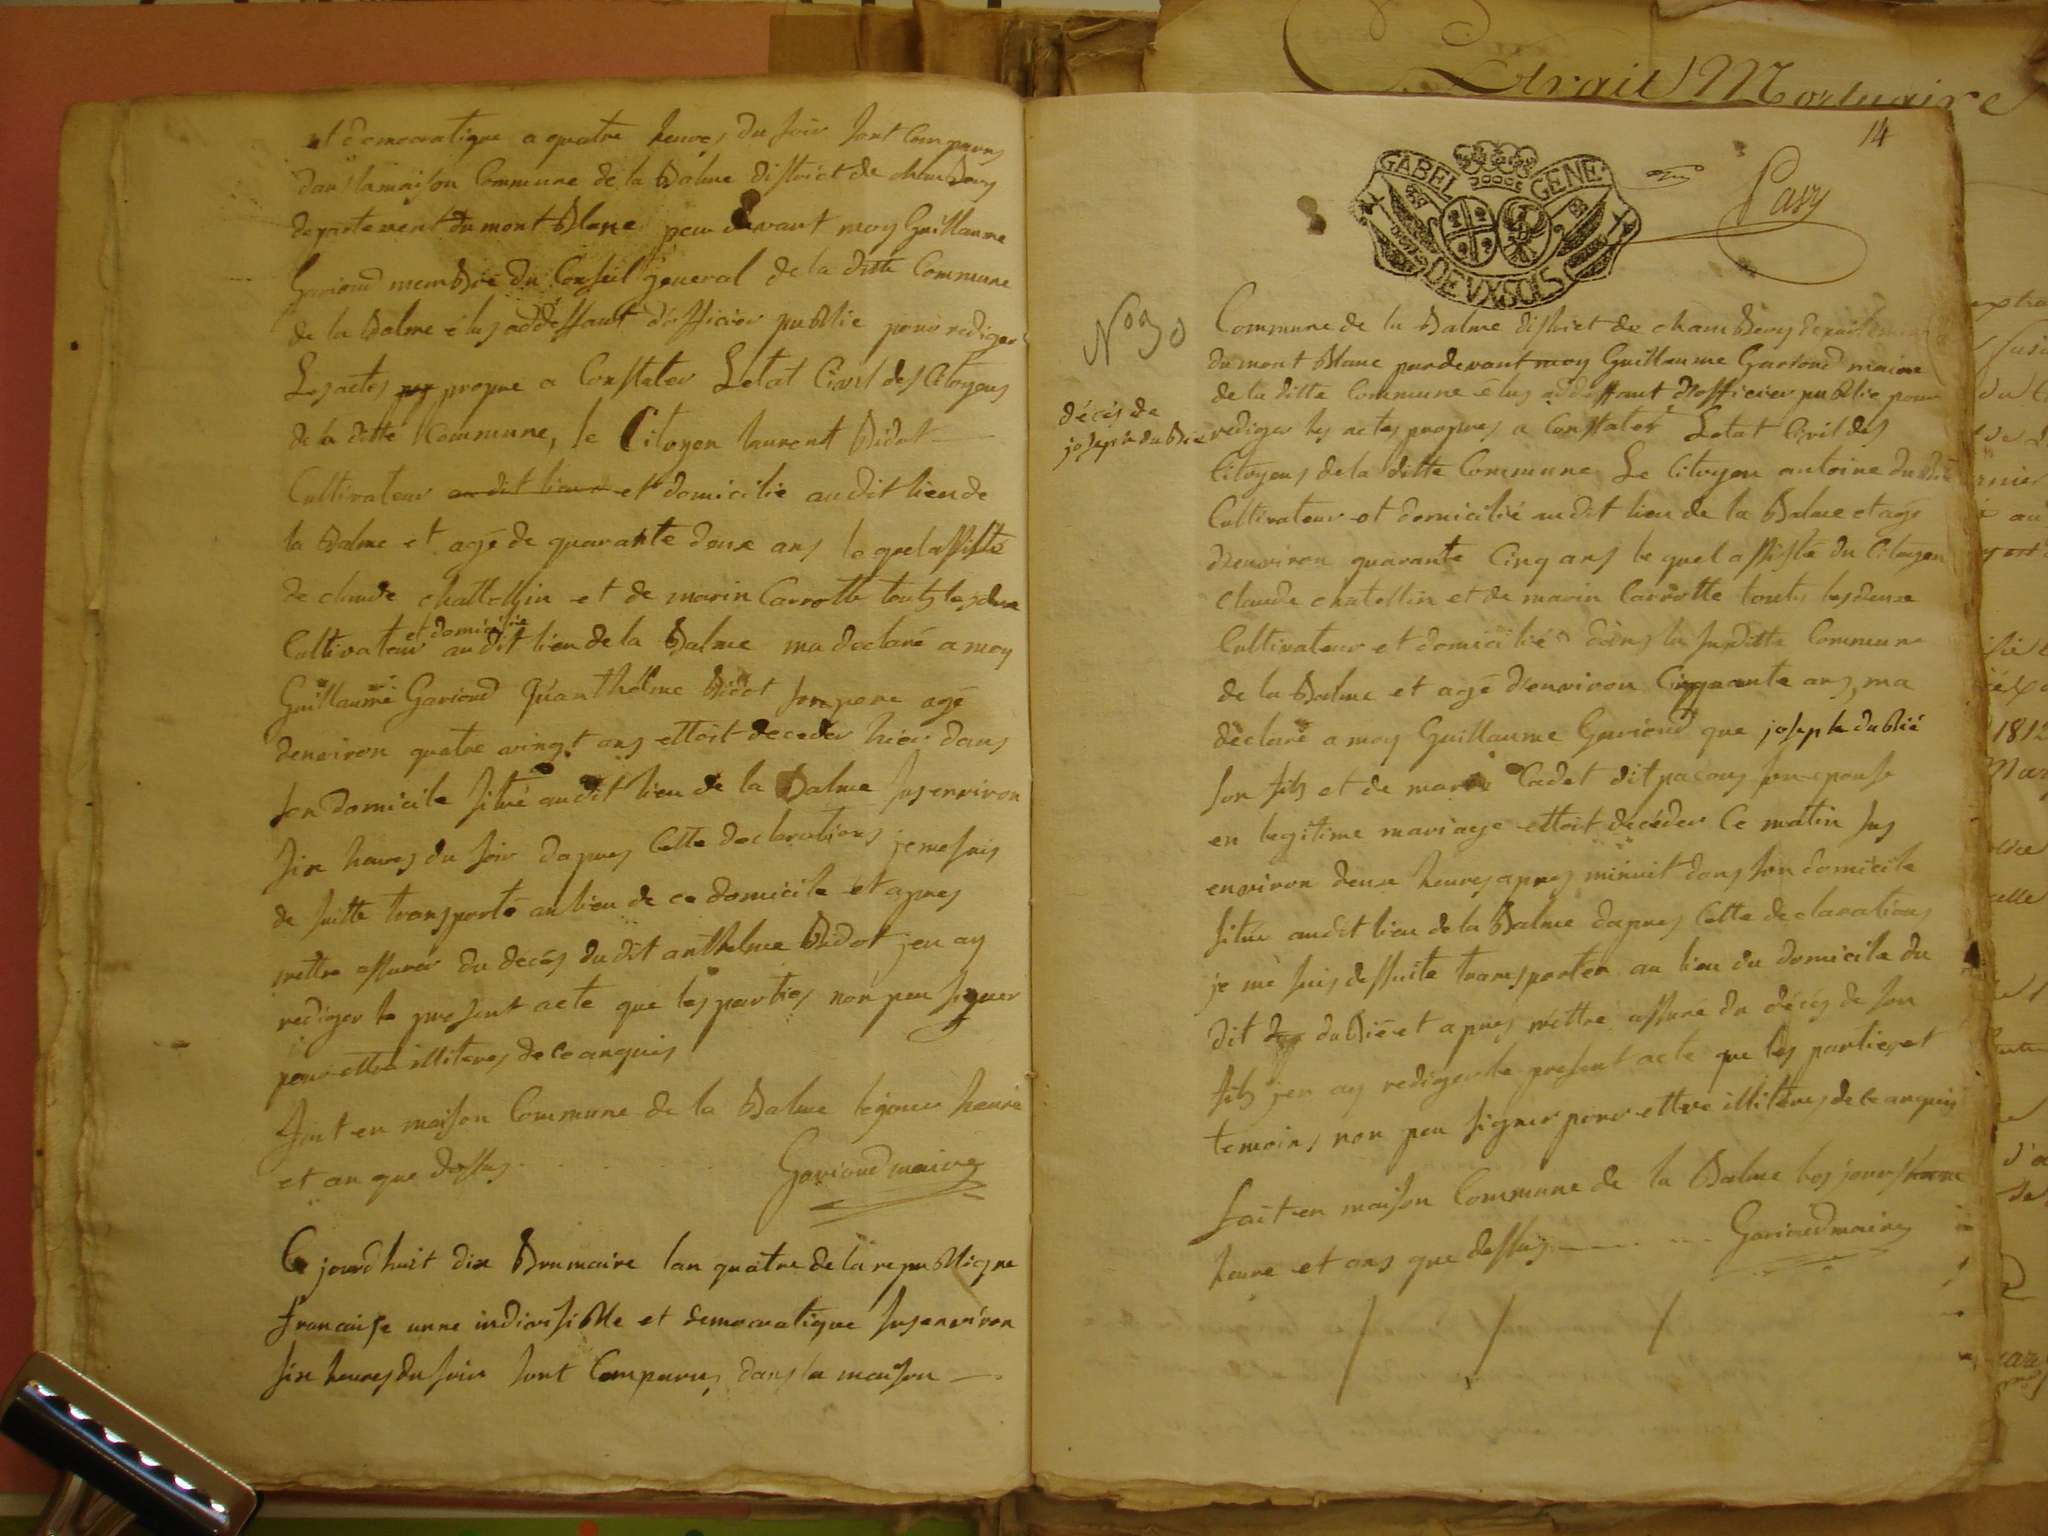 et democratique a quatre heures du soir sont comparus
dans la maison Commune de la Balme district de chamBery
departement du mont Blanc par devant moy Guillaume
Gariond membre du Conseil general de la ditte Commune
de la Balme élus addeffaut d'officier publie pour rediger
Les actes propre a Constater Letat Civil des Citoyens
de la ditte Commune, le Citoyen laurent Bidot
Cultivateur au dit lieu et domicilié audit lieu de
la Balme et agé de quarante deux ans le quel assisté
de claude chattellin et de marin Carrotte touts les deux
Cultivateur et domicilié audit lieu de la Balme ma declaré a moy
Guillaume Gariond Quanthelme Bidot son pere agé
denviron quatre vingt ans ettoit deceder hier dans
son domicile situé audit lieu de la Balme sus environ
six heures du soir dapres Cette declarations je me suis
de suitte transporté au lieu de ce domicile et apres
mettre assurer du decés dudit anthelme Bidot jen ay
rediger le present acte que les parties non peu signer
pour ettre illiteres de ce anquis
fait en maison Commune de la Balme le jour heure
et an que dessus . . . . . Gariond maire
Ce jourdhuit dix Brumaire lan quatre de la republiqne
francaise unne indivisible et democratique sus environ
six heures du soir sont Comparus dans la maison
14
GABEL GENE
DEUX SOLS
No 30
décés de
joseph duBié
Commune de la Balme district de chamBery departement
du mont Blanc pardevant moy Guillaume Gariond maire
de la ditte Commune élus addeffaut d'officier publie pour
rediger les actes propres a Constater Letat Civil des
Citoyens de la ditte Commune Le Citoyen antoine duBié
Cultivateur et domicilié audit lieu de la Balme et agé
d'environ quarante Cinq ans le quel assisté du Citoyen
Claude chatellin et de marin Carrotte touts les deux
Cultivateur et domicilié dans la susditte Commune
de la Balme et agé d'environ Cinquante ans, ma
déclaré a moy Guillaume Gariond que joseph duBié
son fils et de marie Cadet dit pacous son epouse
en legitime mariage ettoit decéder Ce matin sus
environ deux heures apres minuit dans son domicile
situé audit lieu de la Balme dapres Cette declarations
je me suis dessuite transporter au lieu du domicile du
dit duBié et apres mettre assuré du décés de son
fils jen ay rediger le present acte que les parties et
temoins non peu signer pour ettre illiteres de ce anquis
fait en maison Commune de la Balme les jours
heure et ans que dessus . . . Gariond maire
Extrait Mortuaire
1812